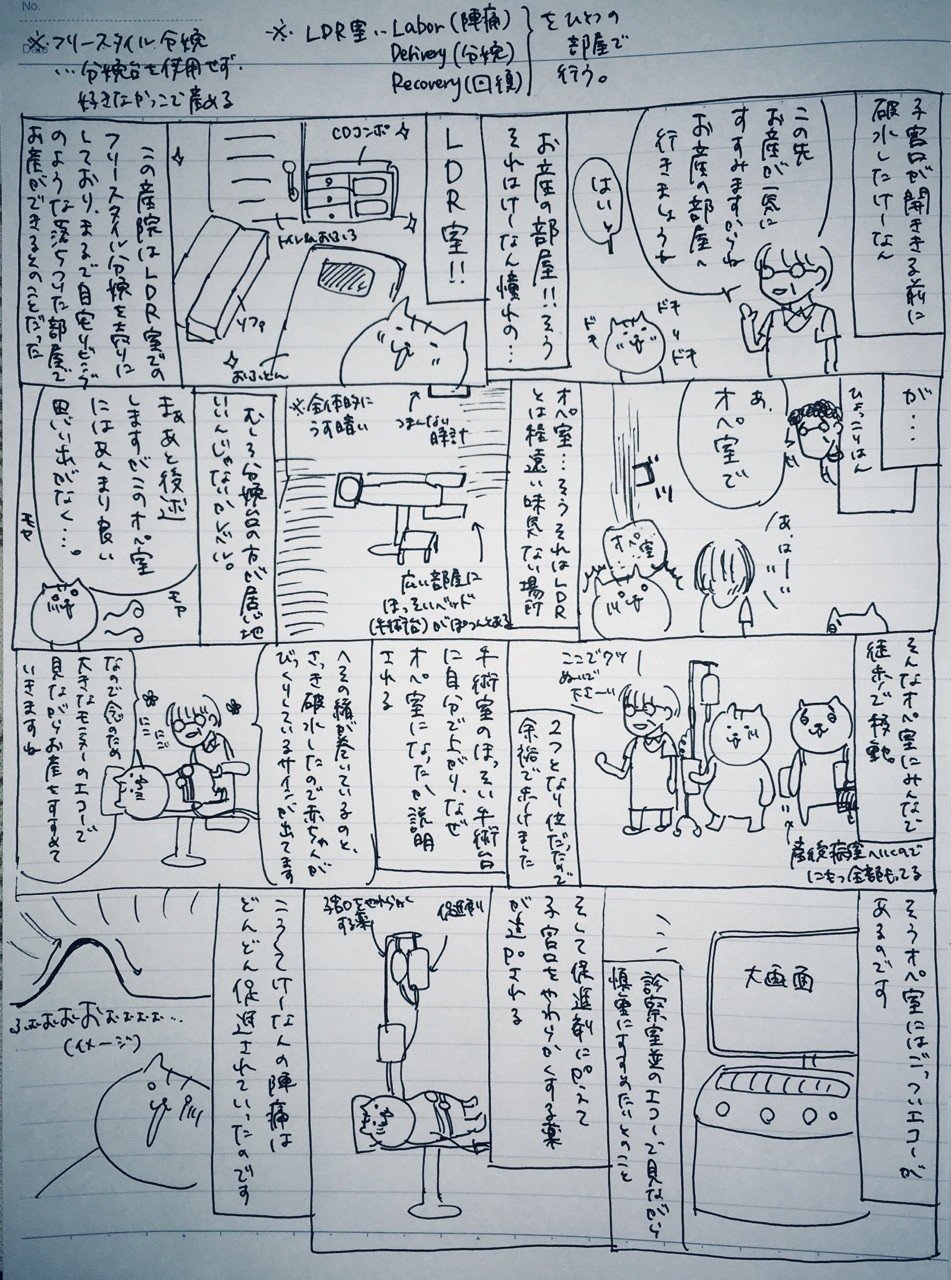 No.
※フリースタイル分娩
…分娩台を使用せず
好きなかっこで産める
※ LDR室…Labor(陣痛)
Delivery(分娩)
Recovery(回復)
をひとつの
部屋で
行う。
子宮口が開ききる前に
破水したけーなん
この先
お産が一気に
すすみますからね
お産の部屋へ
行きましょうね
はいっ
ドキ
ドキ
ドキ
お産の部屋!!そう
それはけーなん憧れの…
LDR室!!
CDコンポ
トイレ&おふろ
ソファ
おふとん
この産院はLDR室での
フリースタイル分娩を売りに
しており、まるで自宅リビング
のような落ちついた部屋で
お産ができるとのことだった
が…
ひょっこりはん
あ、
オペ室で
あ、はーい
ゴッ
オペ室
オペ室…そうそれはLDR
とは程遠い味気ない場所
※全体的に
うす暗い
つまんない
時計
広い部屋に
ほっそいベッド
(手術台)がぽつんとある
むしろ分娩台の方が居心地
いいんじゃないかレベル。
まぁあと後述
しますがこのオペ室
にはあんまり良い
思い出がなく…。
モヤ
モヤ
そんなオペ室にみんなで
徒歩で移動
ここでクツ
ぬいで
下さーい
産後病室へいくので
にもつ全部もってる
2つとなり位だったので
余裕で歩けました
手術室のほっそい手術台
に自分で上がり、なぜ
オペ室になったか説明
される
へその緒が巻いているのと、
さっき破水したので赤ちゃんが
びっくりしているサインが出てます
なので念のため
大きなモニターのエコーで
見ながらお産をすすめて
いきますね
にこ
にこ
そうオペ室にはごっついエコーが
あるのです
大画面
診察室並のエコーで見ながら
慎重にすすめたいとのこと
そして促進剤に加えて
子宮口をやわらかくする薬
が追加される
子宮口をやわらかく
する薬
促進剤
こうしてけーなんの陣痛は
どんどん促進されていったのです
(イメージ)